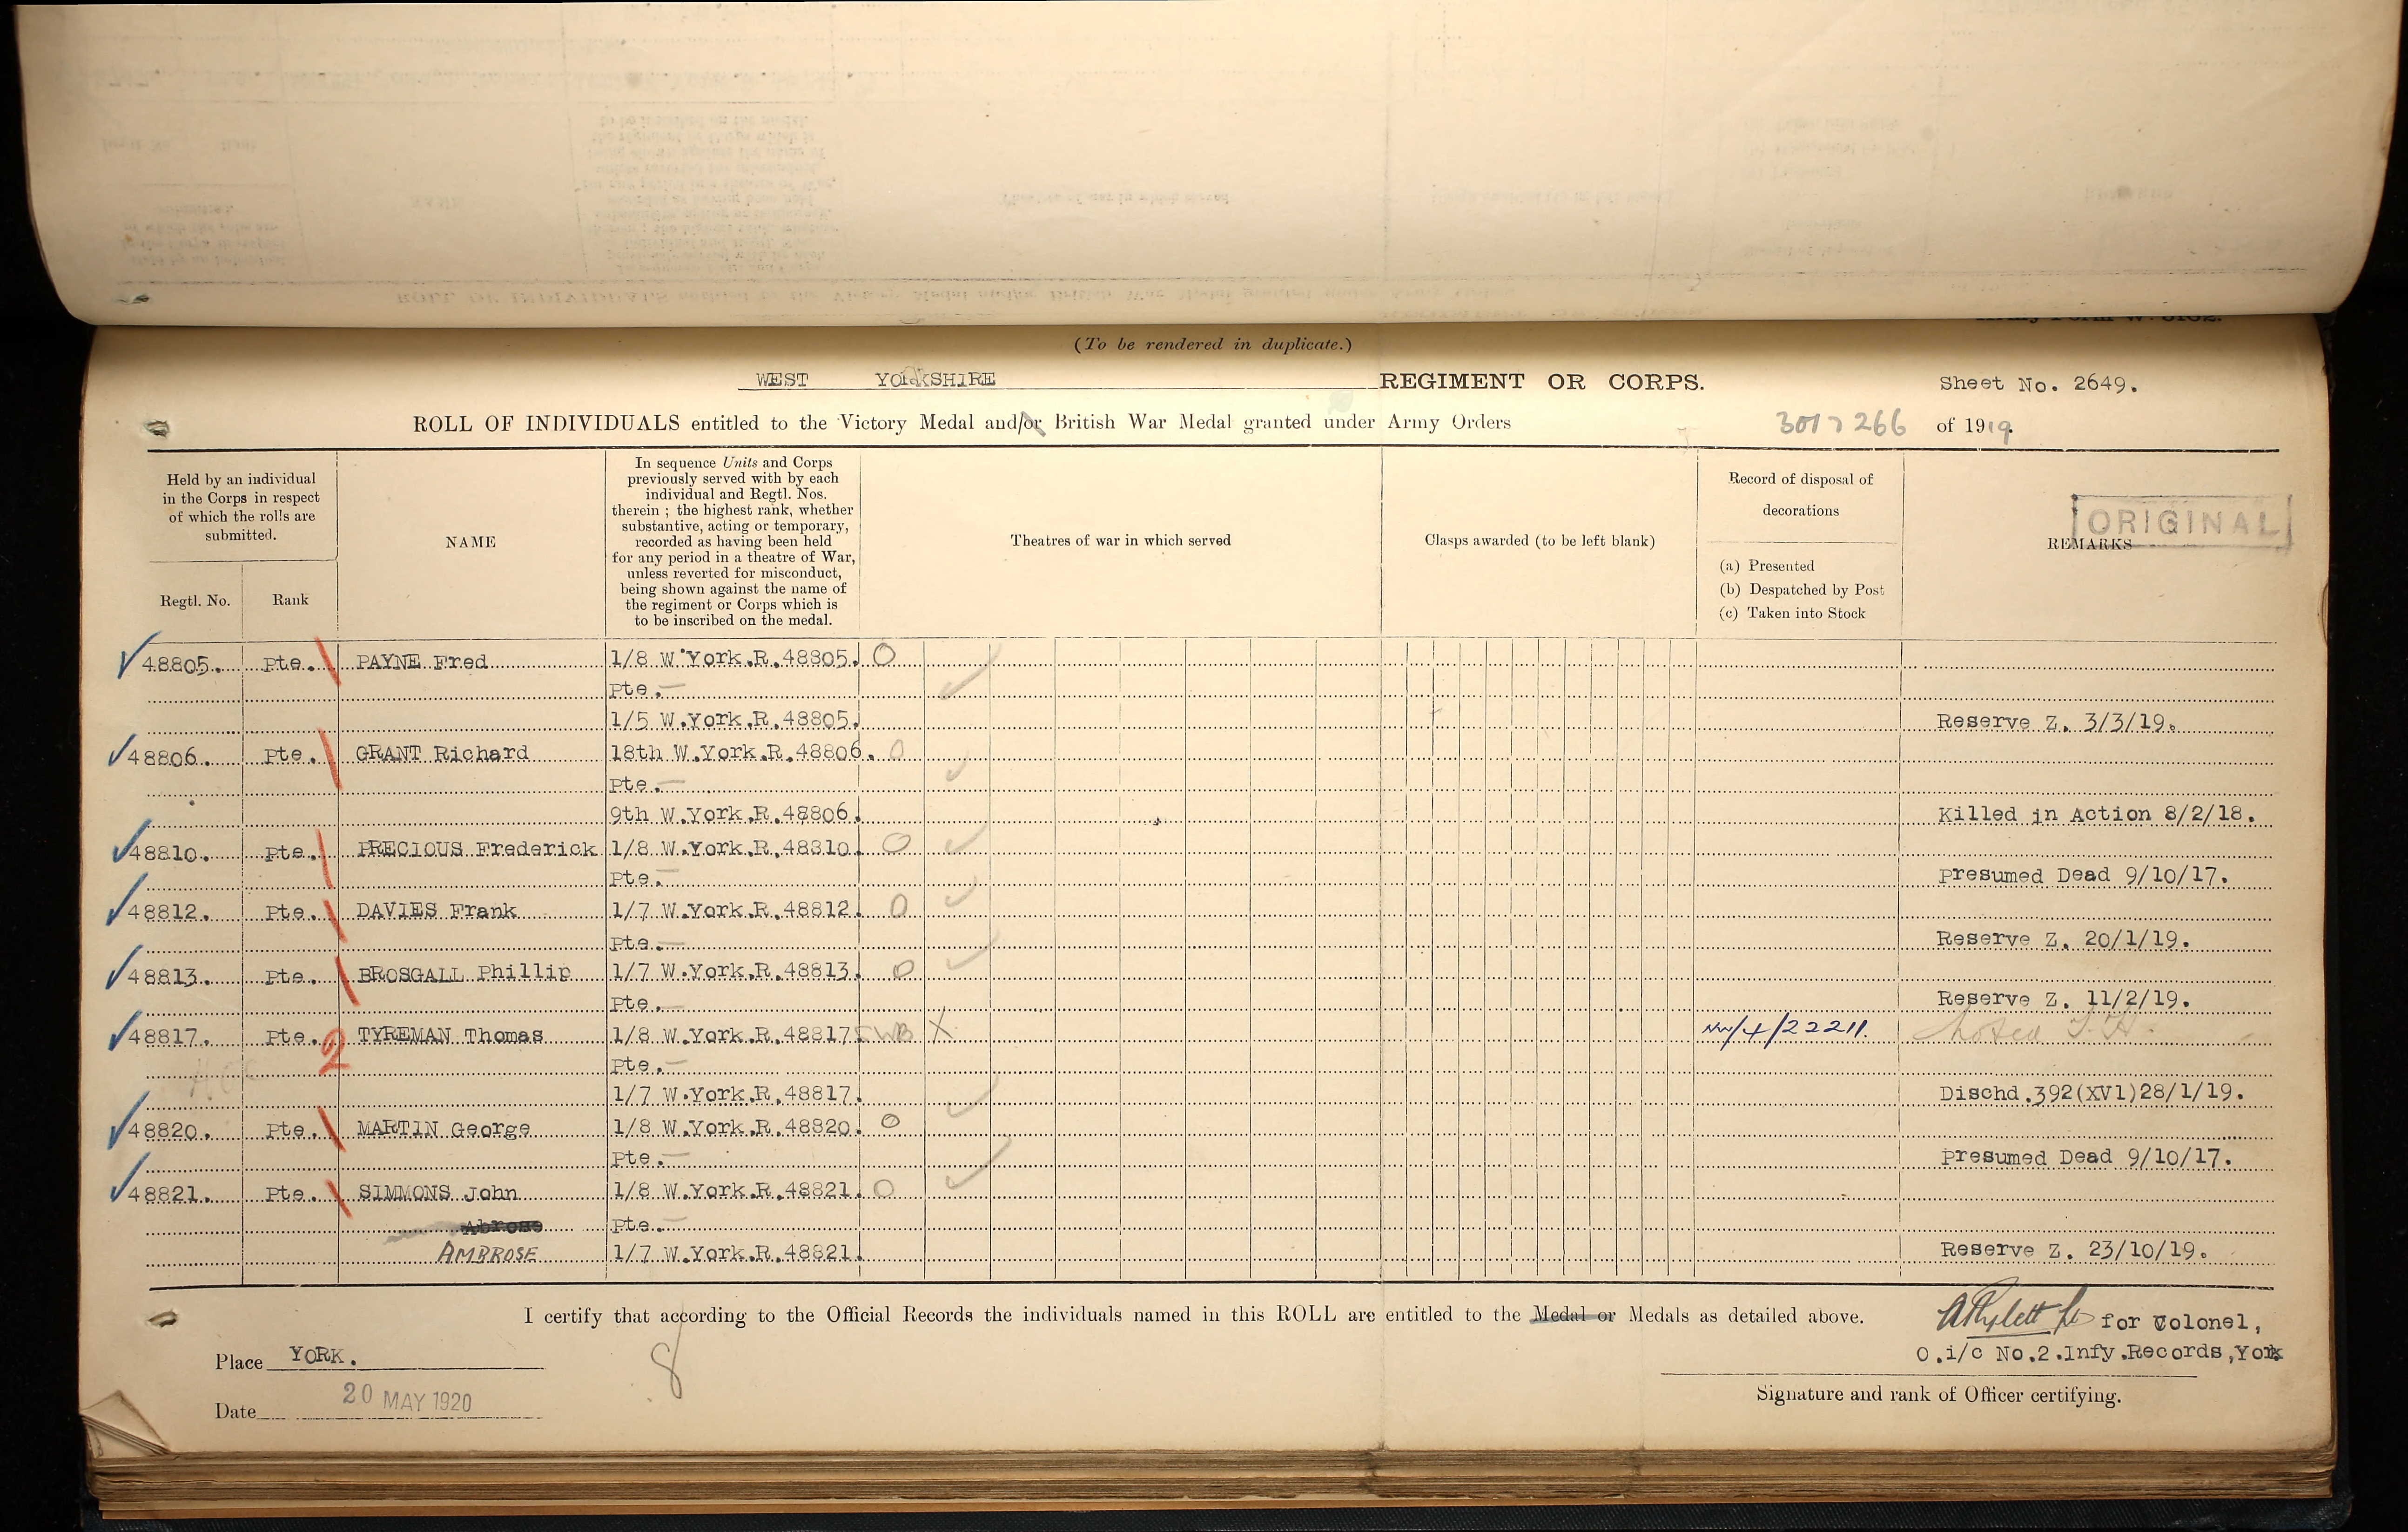 (To be rendered in duplicate.)
WEST YORKSHIRE REGIMENT OR CORPS. Sheet No. 2649.
ROLL OF INDIVIDUALS entitled to the Victory Medal and/or British War Medal granted under Army Orders 301 266 of 1919.
Held by an individual in the Corps in respect of which the rolls are submitted.
Regtl. No. Rank
NAME
In sequence Units and Corps
previously served with by each
individual and Regtl. Nos.
therein ; the highest rank, whether
substantive, acting or temporary,
recorded as having been held
for any period in a theatre of War,
unless reverted for misconduct,
being shown against the name of
the regiment or Corps which is
to be inscribed on the medal.
Theatres of war in which served
Clasps awarded (to be left blank)
Record of disposal of
decorations
(a) Presented
(b) Despatched by Post
(c) Taken into Stock
ORIGINAL
REMARKS
48805. Pte. PAYNE Fred 1/8 W.York.R.48805. O
Pte.—
1/5 W.York.R.48805. Reserve Z. 3/3/19.
48806. Pte. GRANT Richard 18th W.York.R.48806. O
Pte.—
9th W.York.R.48806. Killed in Action 8/2/18.
48810. Pte. PRECIOUS Frederick 1/8 W.York.R.48810. O
Pte.— Presumed Dead 9/10/17.
48812. Pte. DAVIES Frank 1/7 W.York.R.48812. O
Pte.— Reserve Z. 20/1/19.
48813. Pte. BROSGALL Phillip 1/7 W.York.R.48813. O
Pte.— Reserve Z. 11/2/19.
48817. Pte. 2 TYREMAN Thomas 1/8 W.York.R.48817. SWB X NW/4/22211. Noted
Pte.—
1/7 W.York.R.48817. Dischd.392(XV1)28/1/19.
48820. Pte. MARTIN George 1/8 W.York.R.48820. O
Pte.— Presumed Dead 9/10/17.
48821. Pte. SIMMONS John 1/8 W.York.R.48821. O
Abrose Pte.—
AMBROSE 1/7 W.York.R.48821. Reserve Z. 23/10/19.
I certify that according to the Official Records the individuals named in this ROLL are entitled to the Medal or Medals as detailed above.
for Colonel,
Place YORK. 8 O.i/c No.2.Infy.Records,York
Date 20 MAY 1920 Signature and rank of Officer certifying.